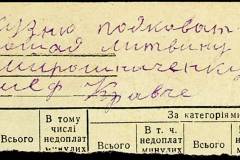 кузню подковат
лошая литвину
Мирошниченку
шеф Кравче
За категоріями
Всього
В тому числі недоплат минулих
Всього
В т. ч. недоплат минулих
Всього